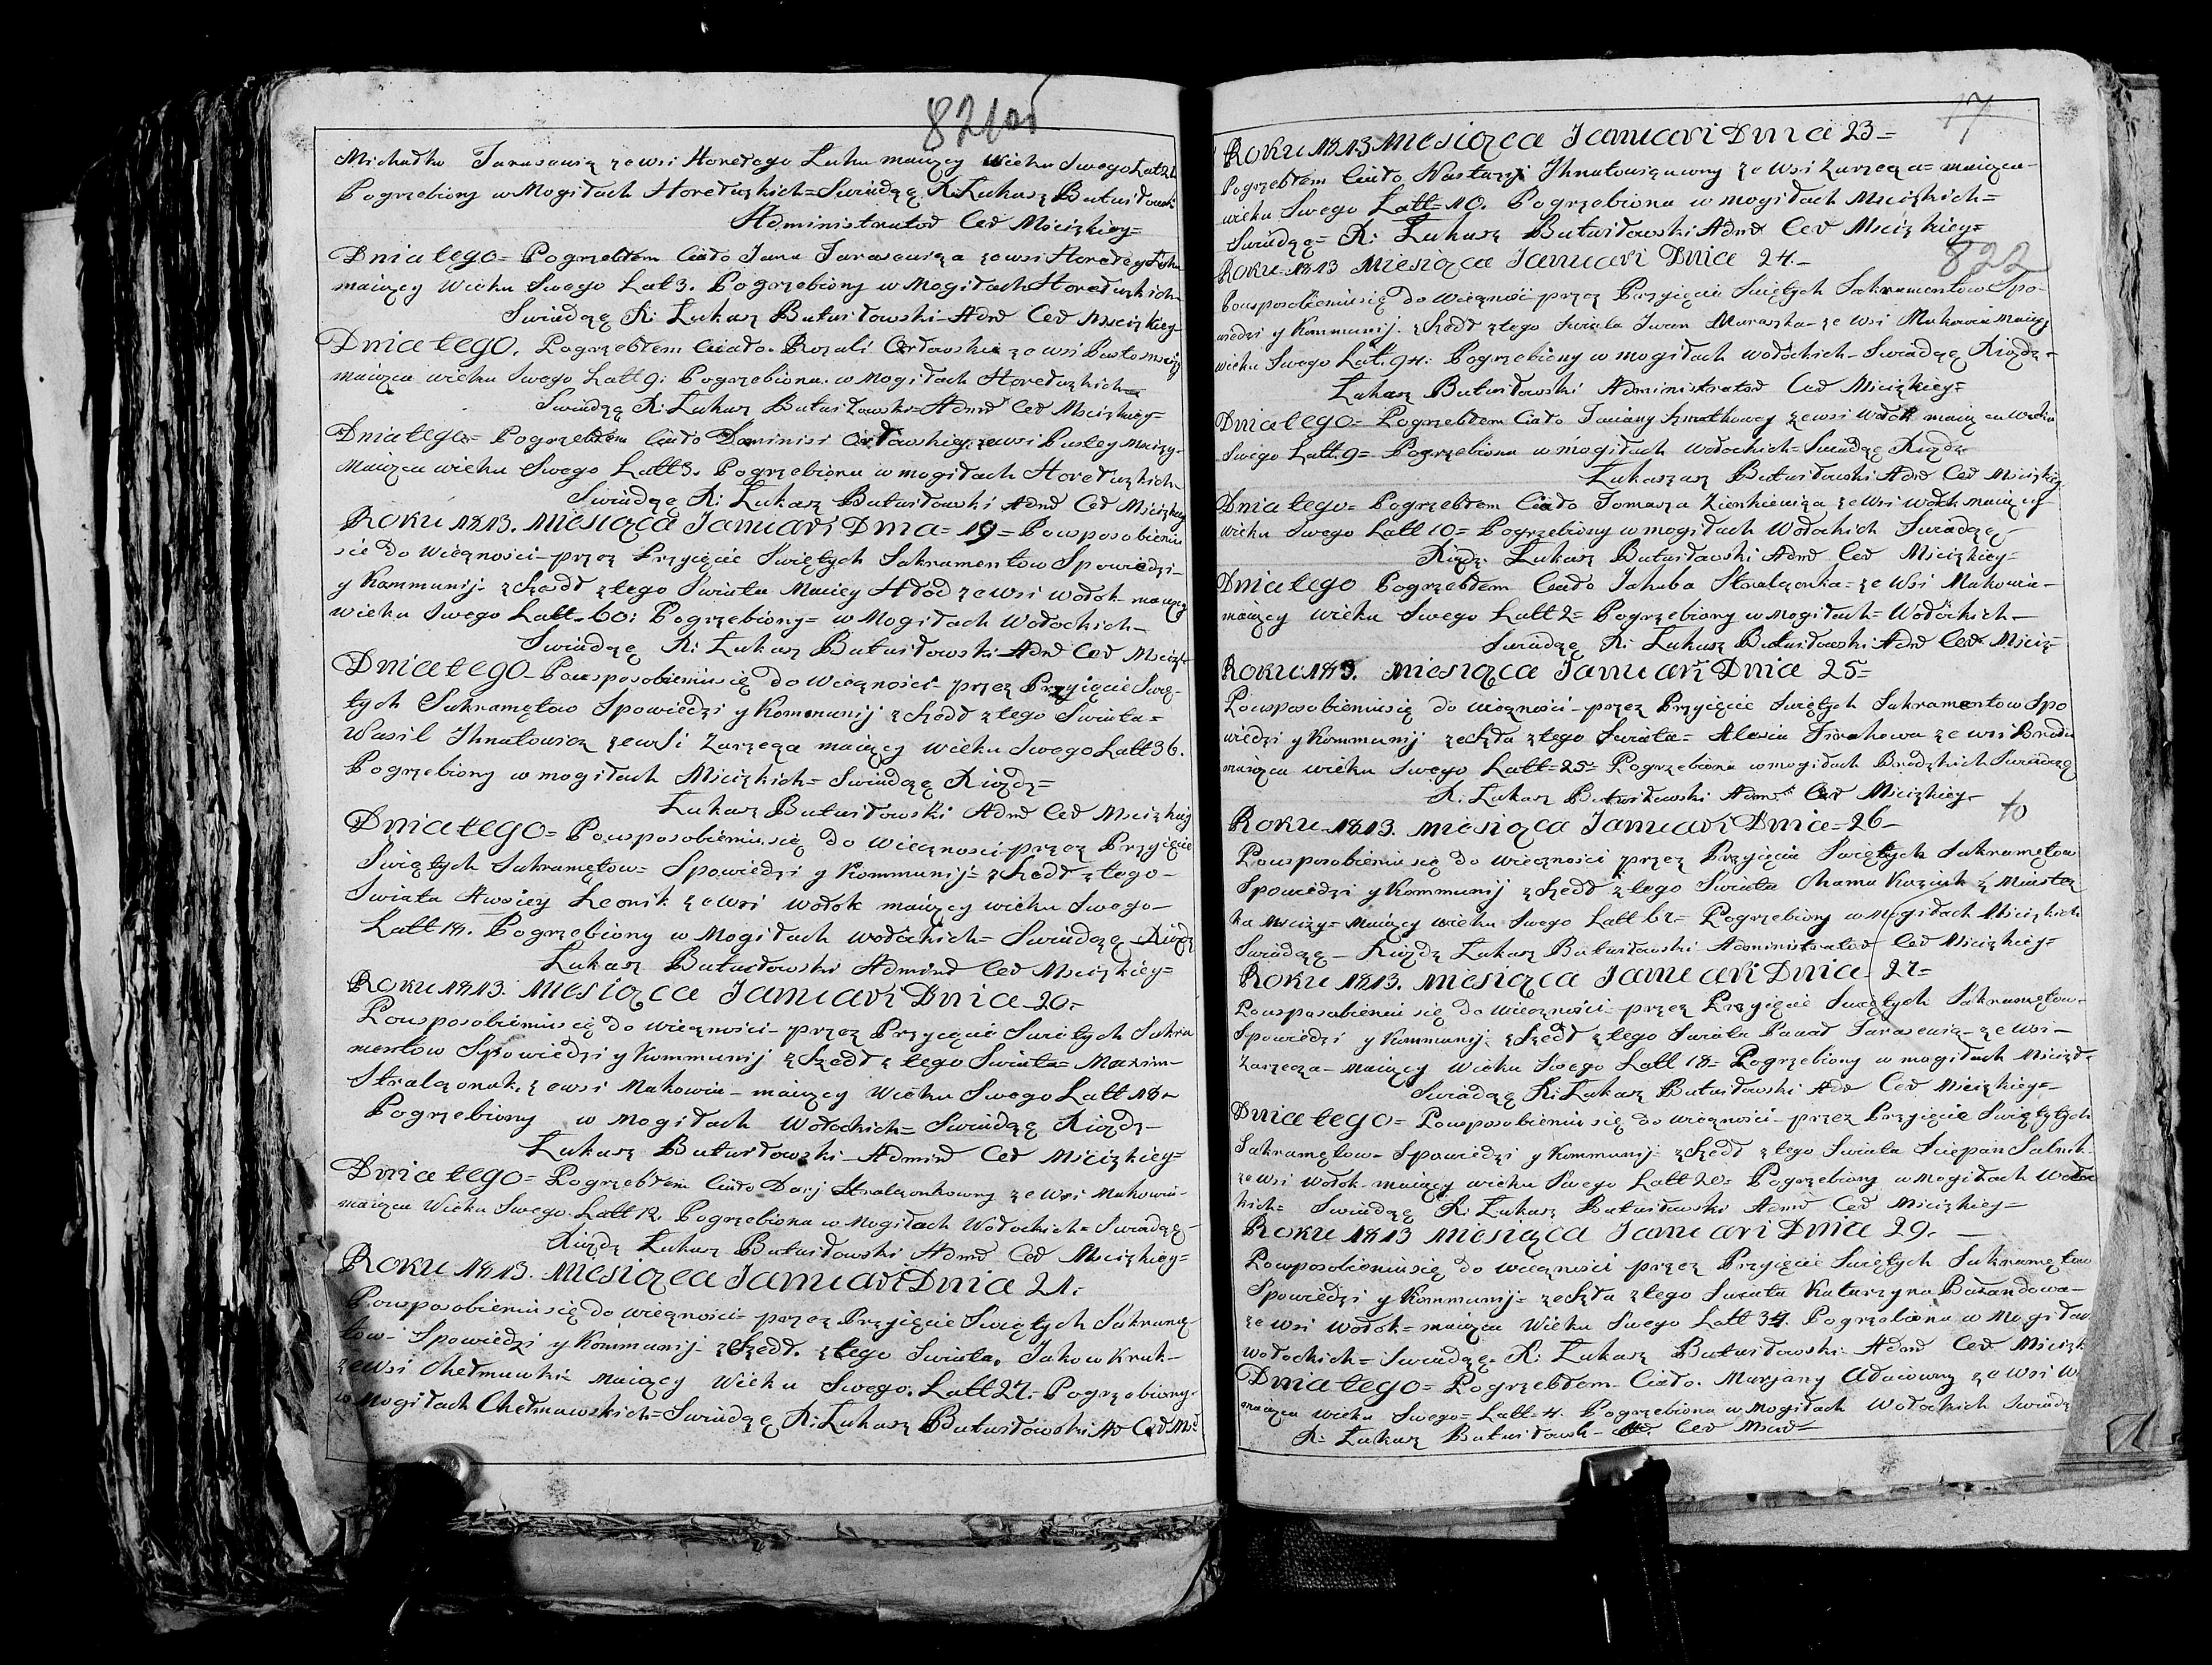 821 об
Michałko Tarasewicz ze wsi Horełego Łuku maiący wieku Swego Lat 21
Pogrzebiony w Mogiłach Horełuzkich = Swiadczę X: Łukasz Butwiłowski
Administrator Cer Mścizkiey =
Dnia tego = Pogrzebłem Ciało Jana Tarasewicza ze wsi Horełego Łuku
maiący Wieku Swego Lat 3. Pogrzebiony w Mogiłach Horełuzkich
Swiadczę X: Łukasz Butwiłowski Admr Cer Mścizkiey
Dnia tego. Pogrzebłem Ciało Rozali Orłowski ze wsi Pustomścizy
maiąca wieku Swego Latt 9: Pogrzebiona w Mogiłach Horełuzkich
Swiadczę X: Łukasz Butwiłowski = Admr Cer Mścizkiey =
Dnia tego = Pogrzebłem Ciało Dominisi Orłowskiey ze wsi Pustey Mścizy
Maiąca wieku Swego Latt 3. Pogrzebiona w mogiłach Horełuzkich
Swiadczę X: Łukasz Butwiłowski Admr Cer Mścizkiey
Roku 1813. Miesiąca Januari Dnia = 19 = Po usposobieniu
sie do Wieczności przez Przyięcie Swiętych Sakramentow Spowiedzi
y Kommunij zszedł z tego Swiata Maciey Hłod ze wsi Wołok maiący
wieku Swego Latt 60: Pogrzebiony = w Mogiłach Wołockich
Swiadczę X: Łukasz Butwiłowski Admr Cer Mścizk
Dnia tego Po usposobieniu się do Wieczności przez Przyięcie Swię-
tych Sakramętow Spowiedzi y Kommunij zszedł z tego Swiata =
Wasil Jhnatowicz ze wsi Zarzecza maiący Wieku Swego Latt 36.
Pogrzebiony w mogiłach Mścizkich = Swiadczę Xiądz =
Łukasz Butwiłowski Admr Cer Mścizkiey
Dnia tego = Po usposobieniu się do Wieczności przez Przyięcie
Swiętych Sakramętow = Spowiedzi y Kommunij = zszedł z tego
Swiata Awsiey Leonik ze wsi Wołok maiący wieku Swego
Latt 18. Pogrzebiony w Mogiłach Wołockich = Swiadczę Xiądz
Łukasz Butwiłowski Admr Cer Mścizkiey =
Roku 1813. Miesiąca Januari Dnia 20 =
Po usposobieniu się do Wieczności przez Przyięcie Swiętych Sakra
mentow Spowiedzi y Kommunij zszedł z tego Swiata = Maxim
Stralczonak ze wsi Makowia maiący Wieku Swego Latt 18
Pogrzebiony w Mogiłach Wołockich = Swiadczę Xiądz
Łukasz Butwiłowski Admr Cer Mścizkiey =
Dnia tego = Pogrzebłem Ciało Darj Stralczonkowny ze Wsi Makowia
maiąca Wieku Swego Latt 12. Pogrzebiona w Mogiłach Wołockich = Swiadczę
Xiądz Łukasz Butwiłowski Admr Cer Mścizkiey =
Roku 1813. Miesiąca Januari Dnia 21.
Po usposobieniu się do wieczności = przez Przyięcie Swiętych Sakramę
tow Spowiedzi y Kommunij zszedł z tego Swiata. Jakow Kruk
ze wsi Chełmawki maiący Wieku Swego. Latt 27. Pogrzebiony
w Mogiłach Chełmawskich = Swiadczę X: Łukasz Butwiłowski Ad Cer Mśc
17
Roku 1813 Miesiąca Januari Dnia 23 =
Pogrzebłem Ciało Nastazyi Jhnatowiczawny ze wsi Zarzecza = maiąca
wieku Swego Latt = 10. Pogrzebiona w mogiłach Mścizkich =
Swiadczę = X: Łukasz Butwiłowski Admr Cer Mścizkiey =
822
Roku 1813 Miesiąca Januari Dnia 24
Po usposobieniu się do Wieczności przez Przyięcie Swiętych Sakramentow Spo-
wiedzi y Kommunij zszedł z tego Swiata Iwan Muraszka ze wsi Makowia maiący
wieku Swego Lat. 94: Pogrzebiony w mogiłach wołockich Swiadczę Xiądz
Łukasz Butwiłowski Administrator Cer Mścizkiey =
Dnia tego = Pogrzebłem Ciało Taciany ze wsi Wołok maiąca wieku
Swego Latt 9 = Pogrzebiona w mogiłach Wołockich = Swiadczę Xiądz
Łukaszasz Butwiłowski Admr Cer Mścizkiey
Dnia tego = Pogrzebłem Ciało Tomasza Zienkiewicza ze wsi Wołok maiący
wieku Swego Latt 10 = Pogrzebiony w mogiłach Wołockich Swiadczę
Xiądz Łukasz Butwiłowski Admr Cer Mścizkiey =
Dnia tego Pogrzebłem Ciało Jakuba Stralczonka = ze wsi Makowia
maiący wieku Swego Latt 2 = Pogrzebiony w Mogiłach = Wołockich
Swiadczę X: Łukasz Butwiłowski Admr Cer Mścizk
Roku 1813. Miesiąca Januari Dnia 25 =
Po usposobieniu się do wieczności przez Przyięcie Swiętych Sakramentow Spo
wiedzi y Kommunij zeszła z tego Swiata = Alesia ze wsi Brodu
maiąca wieku Swego Latt = 25 = Pogrzebiona w mogiłach Brodzkich Swiadczę
X: Łukasz Butwiłowski Admr Cer Mścizkiey
Roku 1813. Miesiąca Januari Dnia = 26
Po usposobieniu się do wieczności przez Przyięcie Swiętych Sakramętow
Spowiedzi y Kommunij zszedł z tego Swiata Chama Kaziuk z Miaste
ka Mścizy = Maiący wieku Swego Latt 62 = Pogrzebiony w Mogiłach Mścizkich
Swiadczę Xiądz Łukasz Butwiłowski Administrator Cer Mścizkiey =
Roku 1813. Miesiąca Januari Dnia 27 =
Po usposobieniu się do wieczności przez Przyięcie Swiętych Sakramętow
Spowiedzi y Kommunij zszedł z tego Swiata Paweł Tarasewicz ze wsi
Zarzecza maiący wieku Swego Latt 18 = Pogrzebiony w mogiłach Mścizk
Swiadczę X: Łukasz Butwiłowski Adr Cer Mścizkiey =
Dnia tego = Po usposobieniu się do wieczności przez Przyięcie Swiętych
Sakramętow Spowiedzi y Kommunij zszedł z tego Swiata Sciepan Salnik
ze wsi Wołok maiący wieku Swego Latt 20 = Pogrzebiony w Mogiłach Wołoc
kich = Swiadczę X: Łukasz Butwiłowski Admr Cer Mścizkiey
Roku 1813 Miesiąca Januari Dnia 29.
Po usposobieniu się do wieczności przez Przyięcie Swiętych Sakramętow
Spowiedzi y Kommunij = zeszła z tego Swiata Katarzyna Barandowa
ze wsi Wołok = maiąca Wieku Swego Latt 34. Pogrzebiona w Mogiłach
wołockich = Swiadczę X: Łukasz Butwiłowski Admr Cer Mścizk
Dnia tego = Pogrzebłem Ciało Maryany ze wsi W
maiąca wieku Swego = Latt = 4. Pogrzebiona w Mogiłach Wołockich Swiadcz
X: Łukasz Butwiłowski Cer Mścizk =